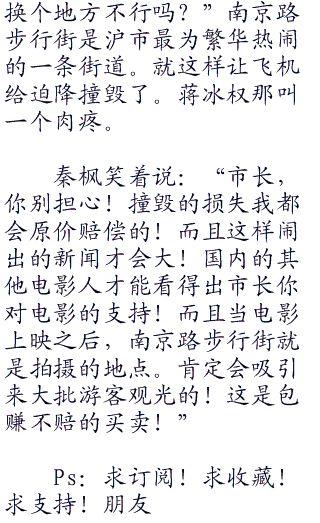 换个地方不行吗？”南京路
步行街是沪市最为繁华热闹
的一条街道。就这样让飞机
给迫降撞毁了。蒋冰权那叫
一个肉疼。
秦枫笑着说：“市长，
你别担心！撞毁的损失我都
会原价赔偿的！而且这样闹
出的新闻才会大！国内的其
他电影人才能看得出市长你
对电影的支持！而且当电影
上映之后，南京路步行街就
是拍摄的地点。肯定会吸引
来大批游客观光的！这是包
赚不赔的买卖！”
Ps：求订阅！求收藏！
求支持！朋友